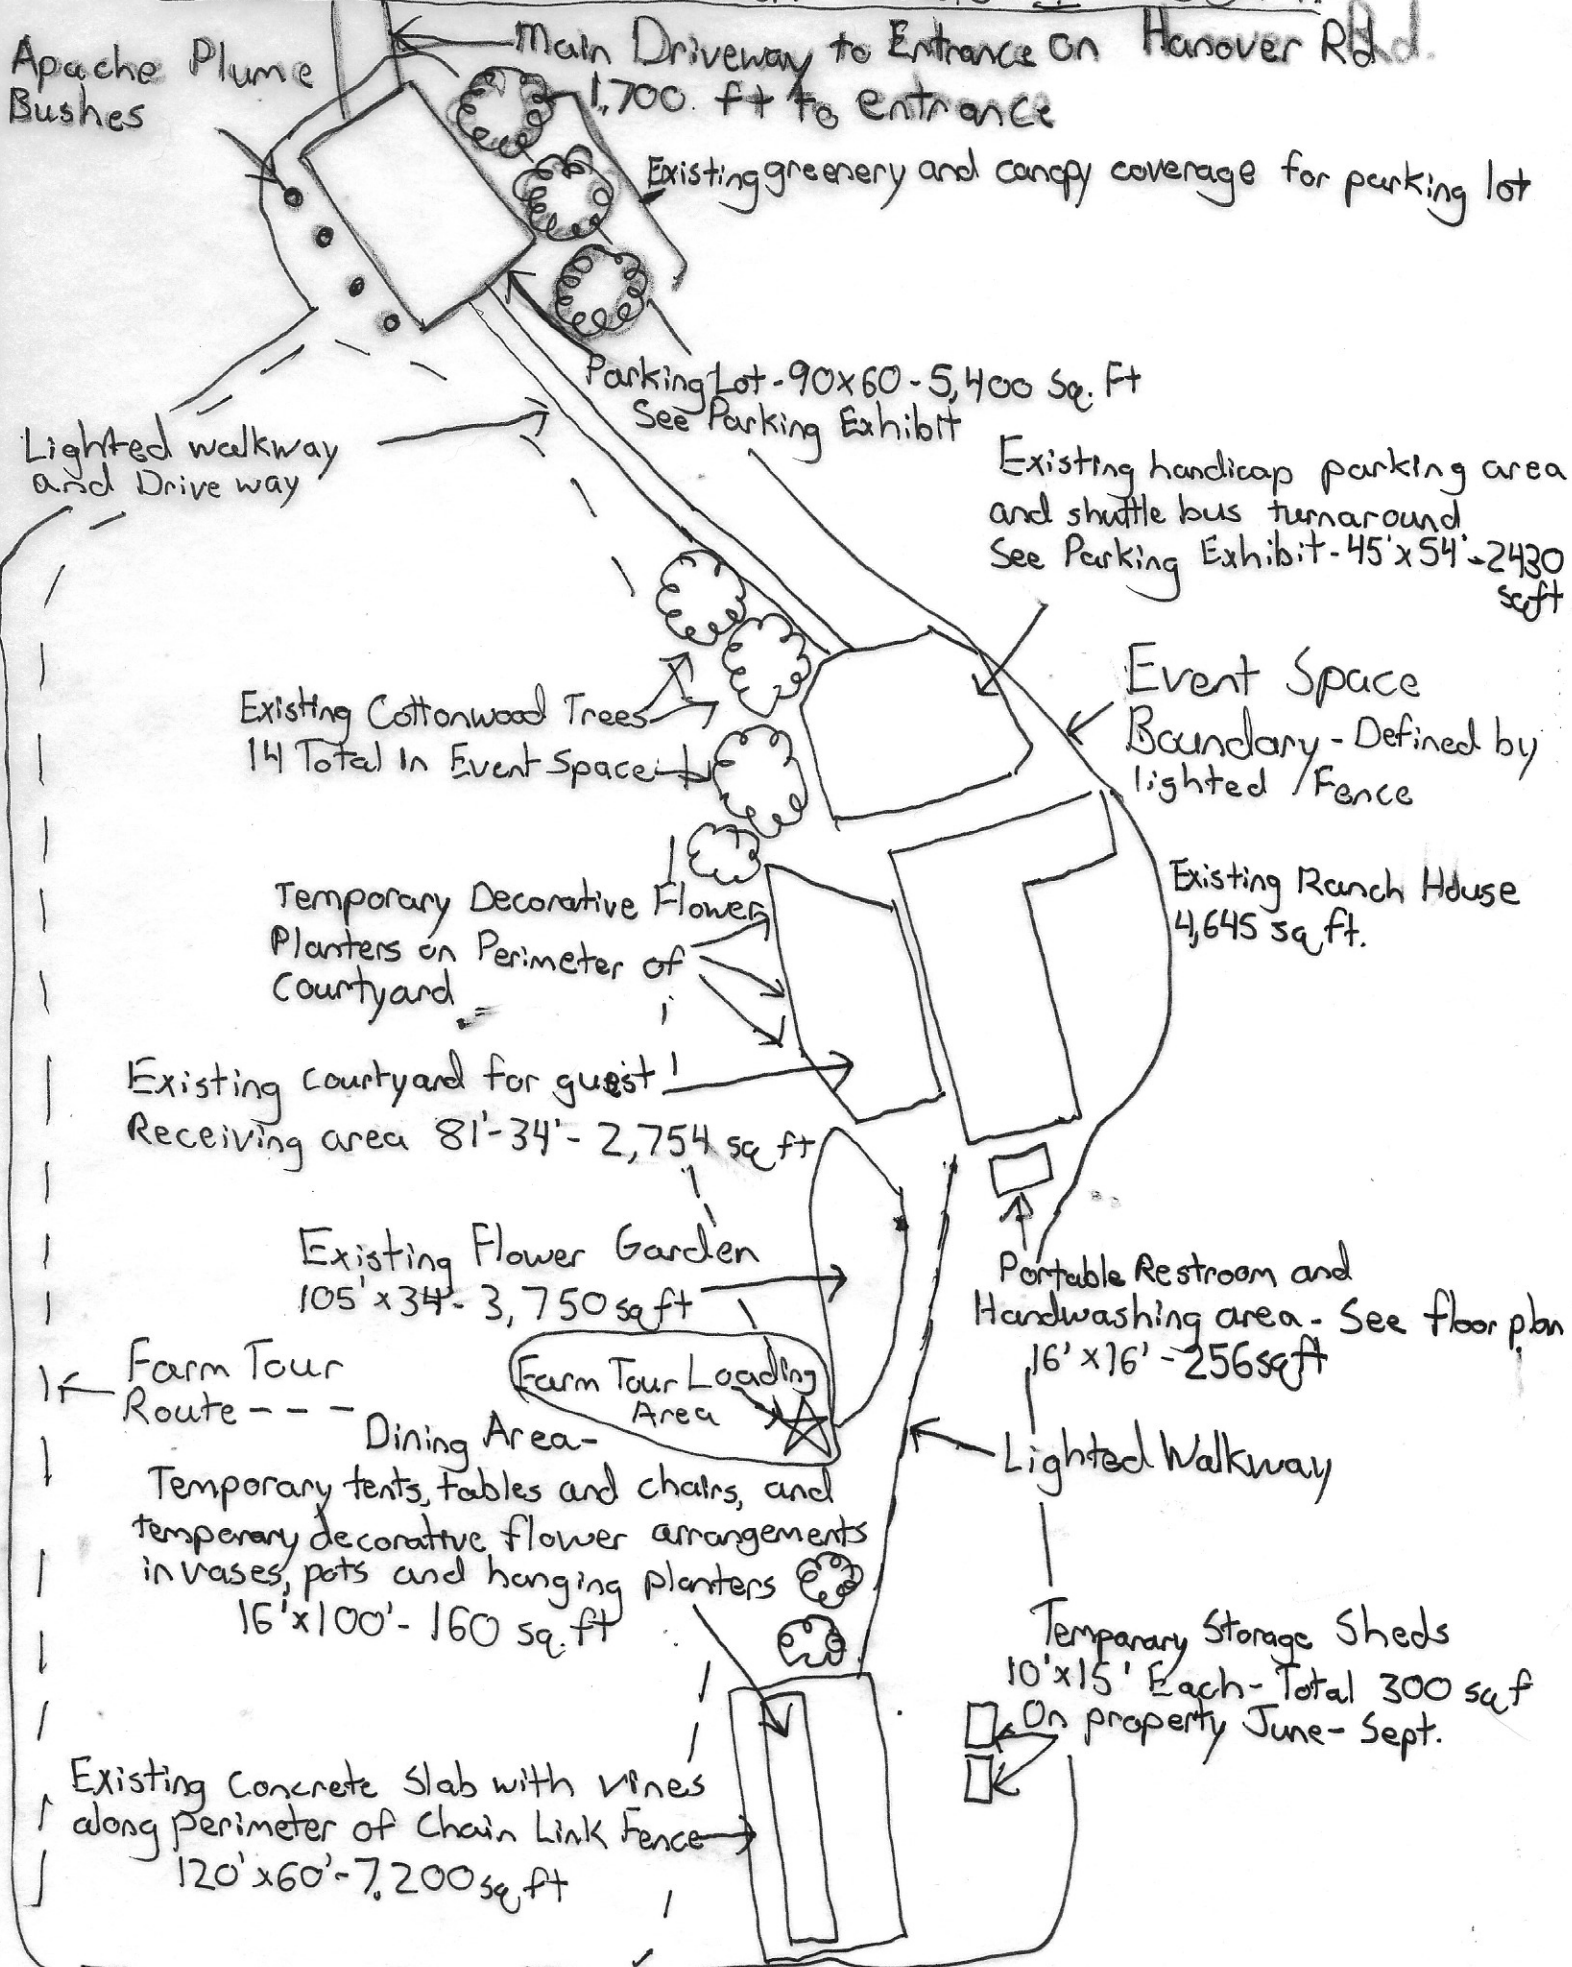 Main Driveway to Entrance on Hanover Rd.
1,700 ft to entrance
Apache Plume
Bushes
Existing greenery and canopy coverage for parking lot
Parking Lot - 90x60 - 5,400 Sq. Ft
See Parking Exhibit
Lighted walkway
and Driveway
Existing handicap parking area
and shuttle bus turnaround
See Parking Exhibit - 45'x54' - 2430
sqft
Event Space
Boundary - Defined by
lighted Fence
Existing Cottonwood Trees
14 Total In Event Space
Existing Ranch House
4,645 sq ft.
Temporary Decorative Flower
Planters on Perimeter of
Courtyard
Existing Courtyard for guest
Receiving area 81'-34'- 2,754 sq ft
Existing Flower Garden
105'x34'- 3,750 sq ft
Portable Restroom and
Handwashing area - See floor plan
16'x16' - 256 sqft
Farm Tour
Route - - -
Farm Tour Loading
Area
Lighted Walkway
Dining Area-
Temporary tents, tables and chairs, and
temporary decorative flower arrangements
in vases, pots and hanging planters
16'x100'- 160 sq. ft
Temparary Storage Sheds
10'x15' Each - Total 300 sq f
On property June - Sept.
Existing Concrete Slab with vines
along perimeter of Chain Link Fence
120'x60'- 7,200 sq ft